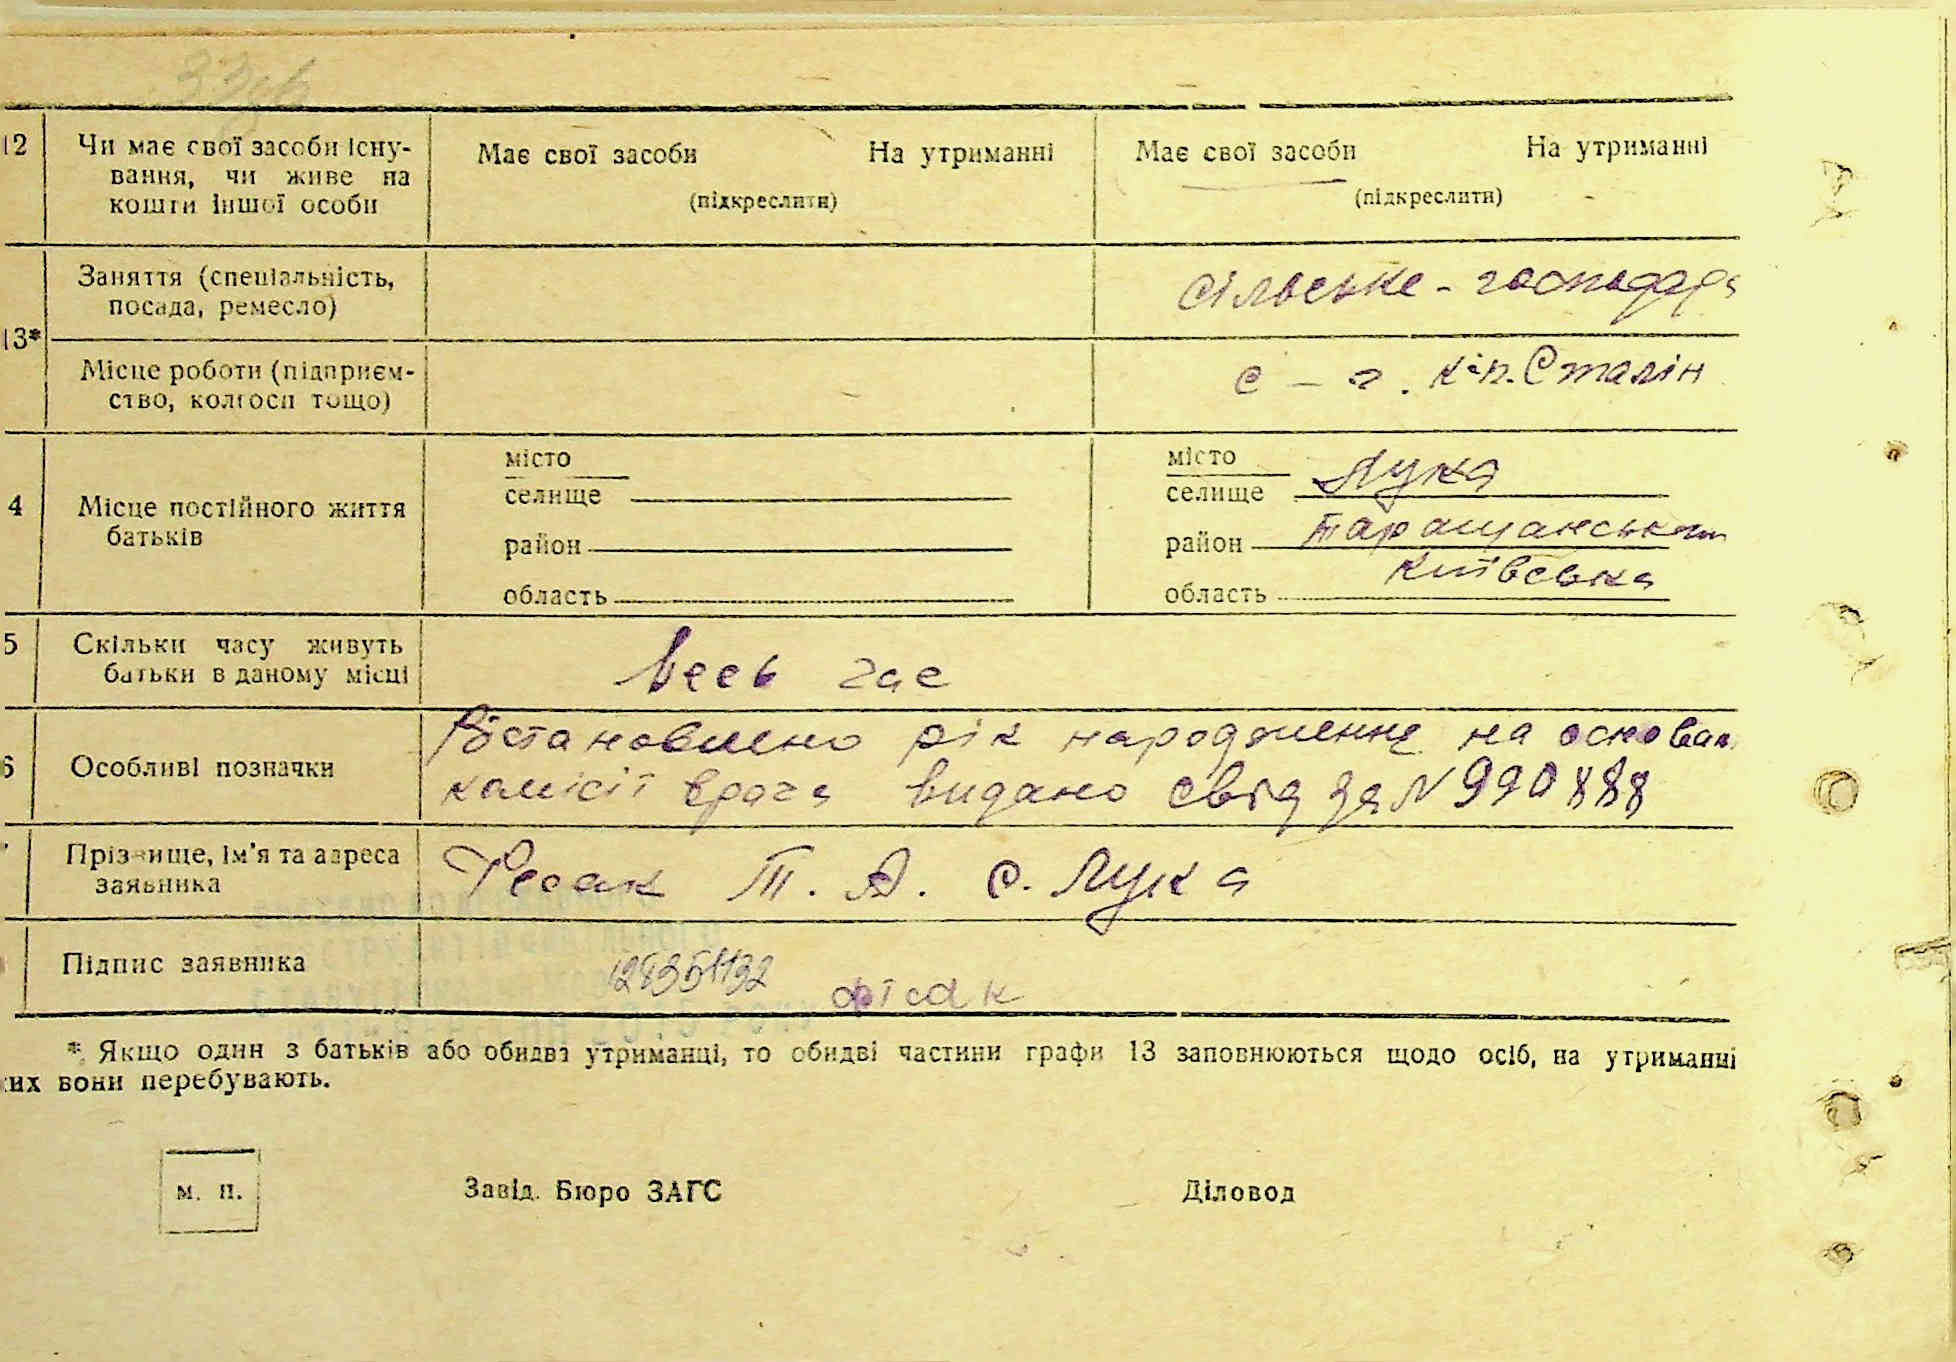 12 Чи має свої засоби існу-
вання, чи живе на
кошти іншої особи
Має свої засоби На утриманні
(підкреслити)
Має свої засоби На утриманні
(підкреслити)
13*
Заняття (спеціальність,
посада, ремесло)
сільське - господар
Місце роботи (підприєм-
ство, колгосп тощо)
с - г. Сталін
4 Місце постійного життя
батьків
місто
селище
район
область
місто
селище Лука
район Таращанський
область Київська
5 Скільки часу живуть
батьки в даному місці
Весь час
6 Особливі позначки
Встановлено рік народження на основан
комісії врача видано свід за № 990888
Прізвище, ім'я та адреса
заявника
Т. А. с. Лука
Підпис заявника
фісак
* Якщо один з батьків або обидва утриманці, то обидві частини графи 13 заповнюються щодо осіб, на утриманні
ких вони перебувають.
м. п.
Завід. Бюро ЗАГС
Діловод